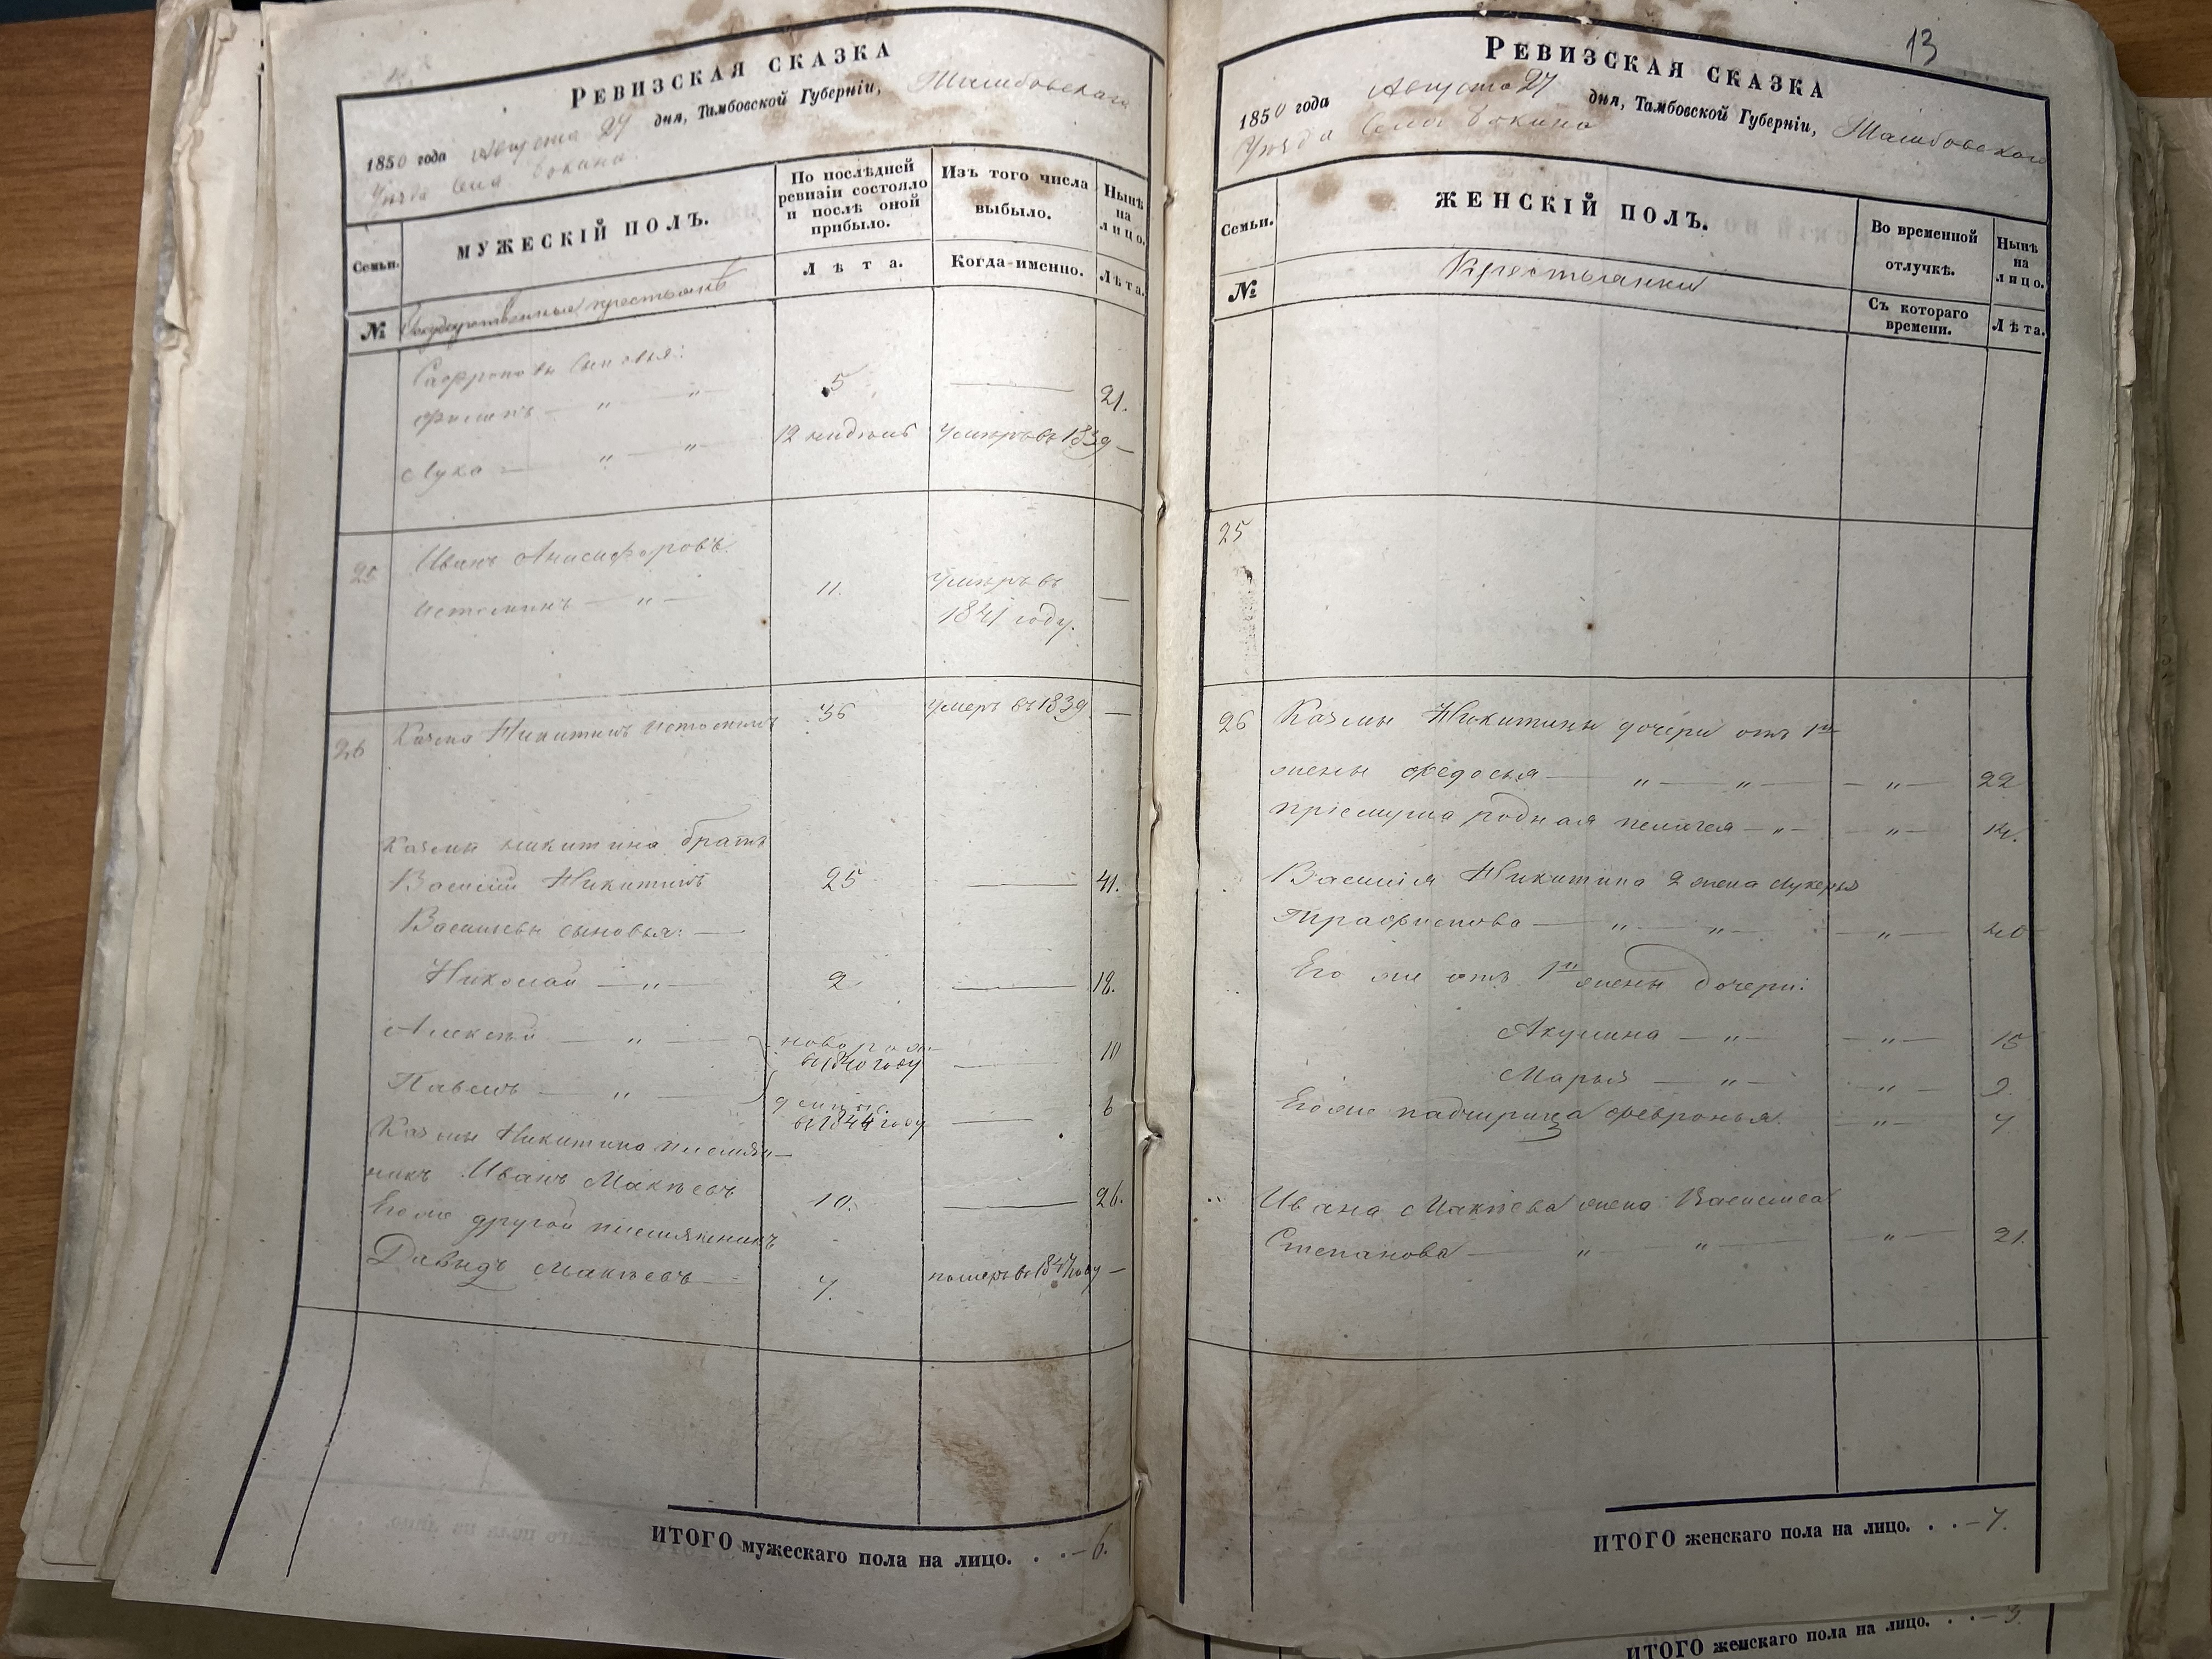 РЕВИЗСКАЯ СКАЗКА
1850 года Августа 27 дня, Тамбовской Губерніи, Тамбовскаго
Уѣзда Села Бокина.
Семьи.
МУЖЕСКІЙ ПОЛЪ.
По послѣдней
ревизіи состояло
и послѣ оной
прибыло.
Изъ того числа
выбыло.
Нынѣ
на
лицо.
Лѣта.
Когда-именно.
Лѣта.
№ Государственные крестьянѣ
Сафроновы сыновья:
Филипъ — " — " 5 — 21.
Лука — " — " 12 недѣль Умѣръ въ 1839 —
25 Иванъ Анисифоровъ
Истоминъ — " — 11. Умѣръ въ —
1841 году.
26 Казма Никитинъ Истоминъ 36 умеръ въ 1839 —
Казмы Никитина братъ
Василій Никитинъ 25 — 41.
Васильевы сыновья: —
Николай — " — 2 — 18.
Алексѣй — " — новорож—
въ 1840 году — 10
Павелъ — " —
въ 1844 году — 6
Казмы Никитина племян—
никъ Иванъ Макѣевъ 10. — 26.
Его же другой племяненикъ
Давыдъ Макѣевъ — 7. померъ въ 1847 году —
ИТОГО мужескаго пола на лицо. . . — 6.
13
РЕВИЗСКАЯ СКАЗКА
1850 года Августа 27 дня, Тамбовской Губерніи, Тамбовскаго
Уѣзда Села Бокина
Семьи.
ЖЕНСКІЙ ПОЛЪ.
Во временной
отлучкѣ.
Нынѣ
на
лицо.
№
Крестьянки
Съ котораго
времени.
Лѣта.
25
26 Казмы Никитины дочери отъ 1й
жены Федосья — " — " — — " — 22
родная Пелагея — " — — " — 14.
Василія Никитина 2 жена Лукерья
Трафистова — " — " — — " — 40
Его же отъ 1й жены дочери:
Акулина — " — — " — 15
Марья — " — — " — 9.
Его же падчирица Февронья — " — 7
Ивана Макѣева жена Василиса
Степанова — " — " — — " — 21.
ИТОГО женскаго пола на лицо. . . — 7.
ИТОГО женскаго пола на лицо. . . — 3.